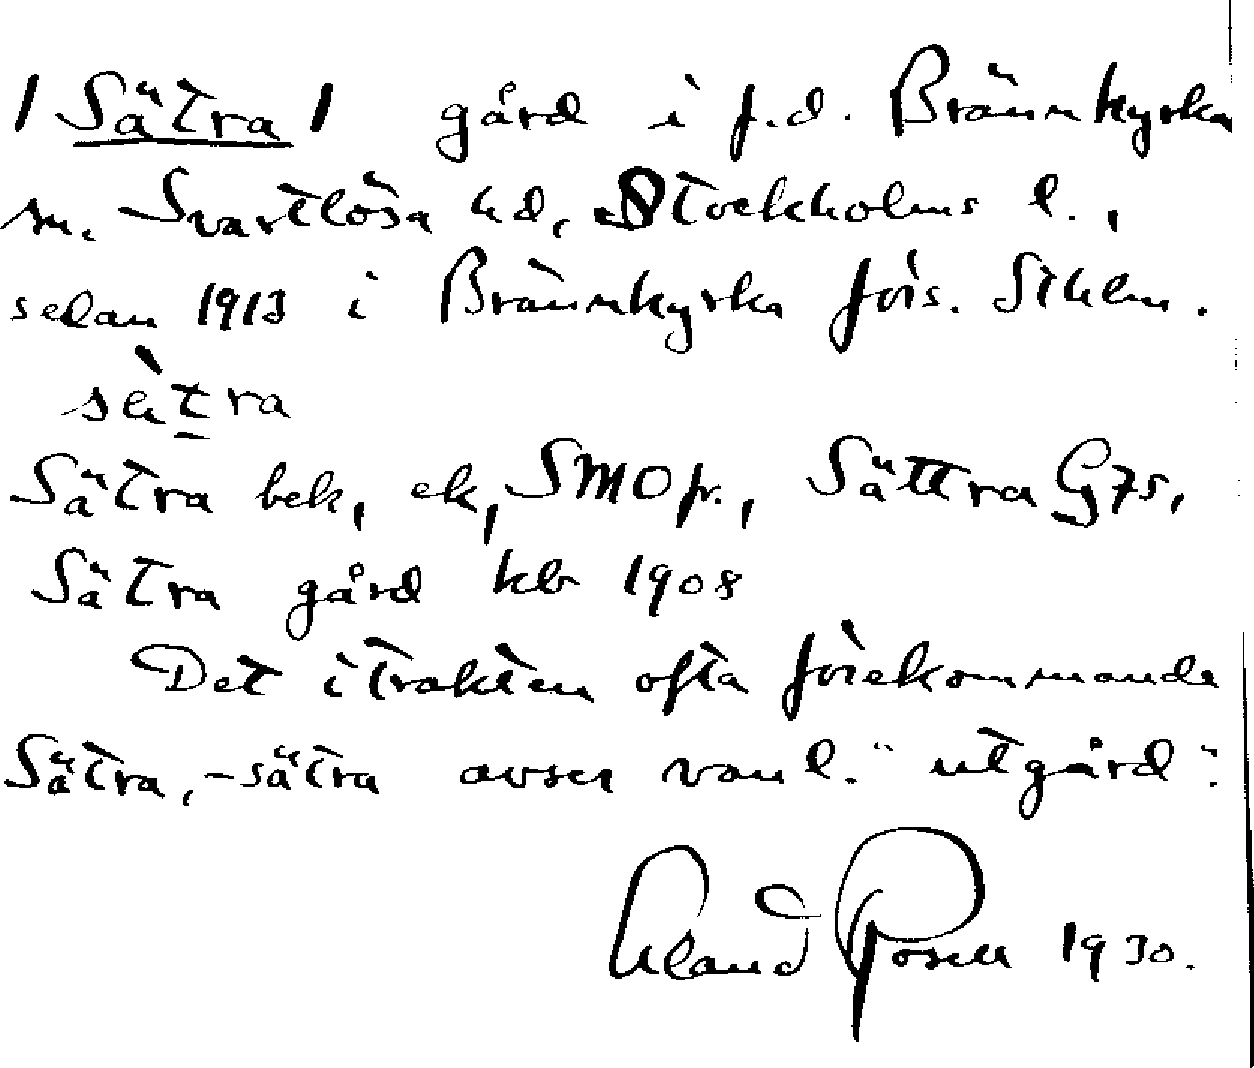 /Sätra/ gård i f.d. Brännkyrka
sn. Svartlösa hd, Stockholms l.,
sedan 1913 i Brännkyrka förs. Sthlm.
sètra
Sätra bek, ek, SMOpr., Sättra G75,
Sätra gård kb 1908
Det i trakten ofta förekommande
Sätra, -sätra avser vanl. "utgård".
Erland Rosell 1930.